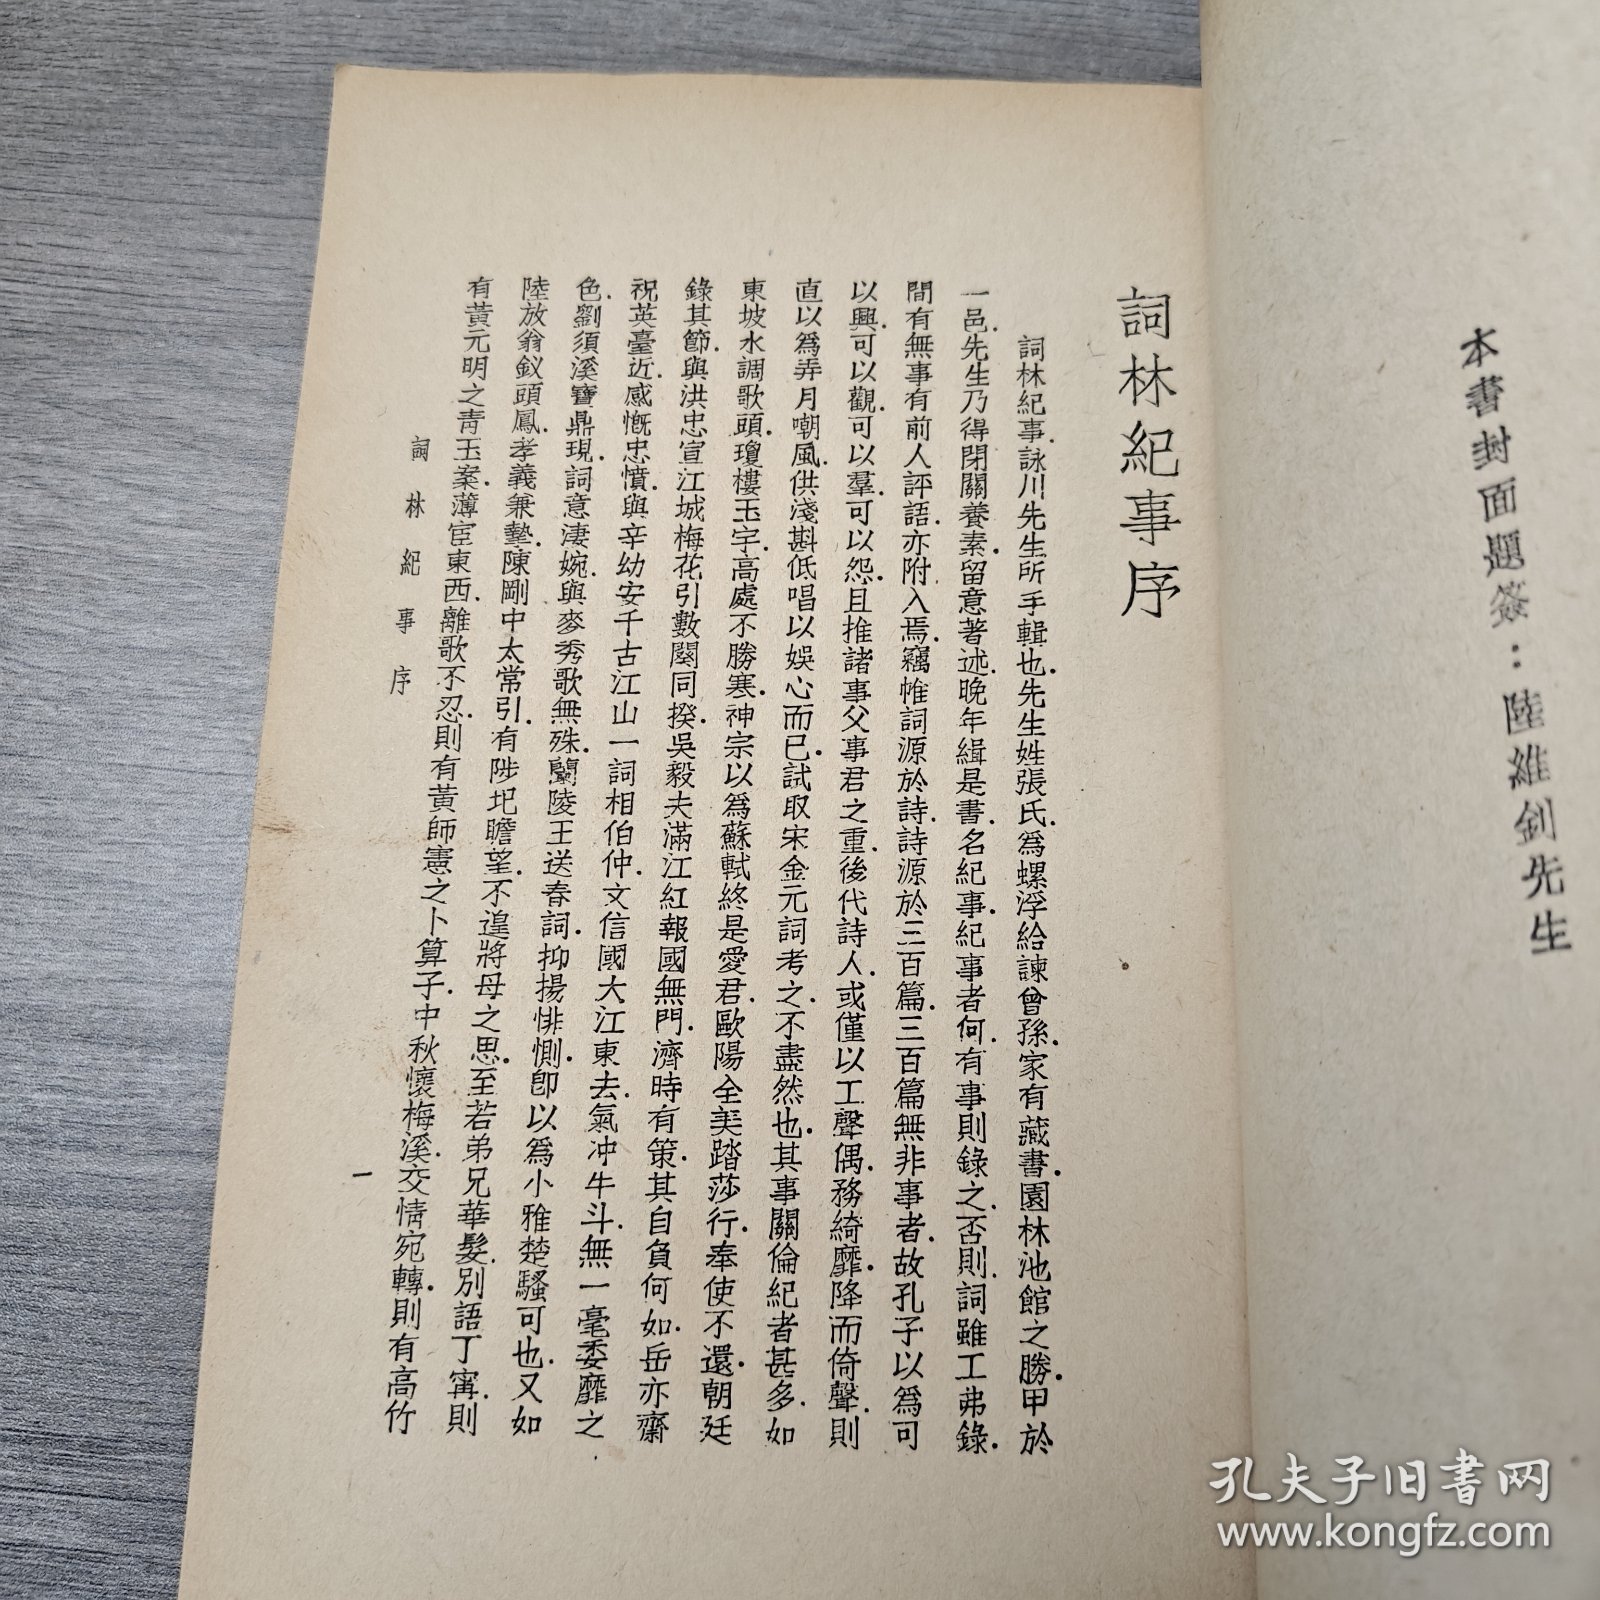 本書封面題簽：陸維釗先生
詞林紀事序
詞林紀事．詠川先生所手輯也．先生姓張氏．爲螺浮給諫曾孫．家有藏書．園林池館之勝．甲於
一邑．先生乃得閉關養素．留意著述．晚年緝是書．名紀事．紀事者何．有事則錄之．否則詞雖工弗錄．
間有無事有前人評語．亦附入焉．竊惟詞源於詩．詩源於三百篇．三百篇無非事者．故孔子以爲可
以興．可以觀．可以羣．可以怨．且推諸事父事君之重．後代詩人．或僅以工聲偶．務綺靡．降而倚聲．則
直以爲弄月嘲風．供淺斟低唱以娛心而已．試取宋金元詞考之．不盡然也．其事關倫紀者甚多．如
東坡水調歌頭．瓊樓玉宇．高處不勝寒．神宗以爲蘇軾終是愛君．歐陽全美踏莎行．奉使不還．朝廷
錄其節．與洪忠宣江城梅花引數闋同揆．吳毅夫滿江紅報國無門．濟時有策．其自負何如．岳亦齋
祝英臺近．感慨忠憤．與辛幼安千古江山一詞相伯仲．文信國大江東去．氣冲牛斗．無一毫委靡之
色．劉須溪寶鼎現．詞意淒婉．與麥秀歌無殊．蘭陵王送春詞．抑揚悱惻．卽以爲小雅楚騷可也．又如
陸放翁釵頭鳳．孝義兼摯．陳剛中太常引．有陟圯瞻望．不遑將母之思．至若弟兄華髮．別語丁寧．則
有黃元明之青玉案．薄宦東西．離歌不忍．則有黃師憲之卜算子．中秋懷梅溪．交情宛轉．則有高竹
詞林紀事序
一
孔夫子旧书网
www.kongfz.com